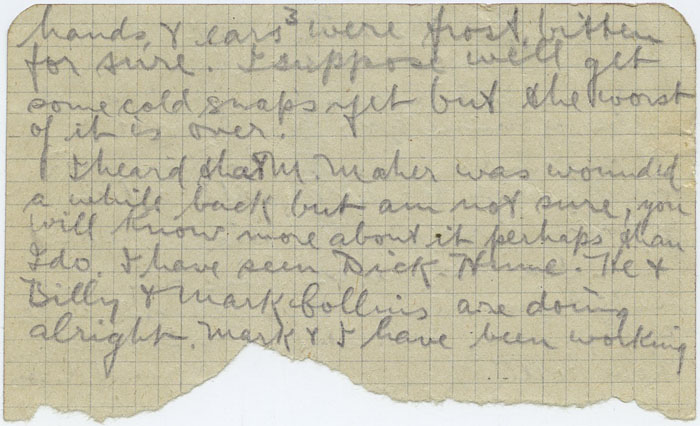 hands & ears were frost bitten
3
for sure. I suppose we'll get
some cold snaps yet but the worst
of it is over.
I heard that M. Maher was wounded
a while back but am not sure, you
will know more about it perhaps than
I do. I have seen Dick. He &
Billy & Mark Collins are doing
alright. Mark & I have been working